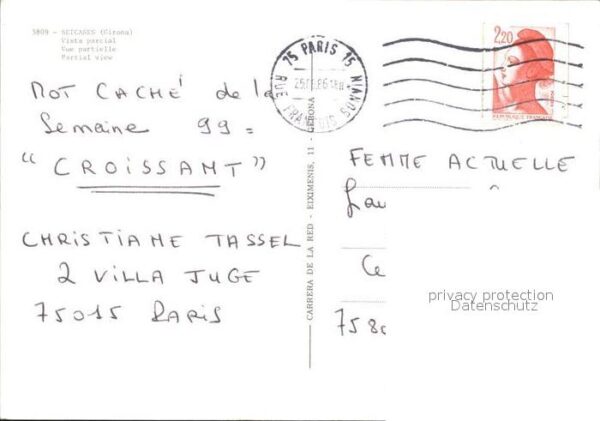 3809 - SETCASES (Girona)
Vista parcial
Vue partielle
Partial view
MOT CACHÉ de la
Semaine 99 =
"CROISSANT"
CHRISTIANE TASSEL
2 VILLA JUGE
75015 PARIS
CARRERA DE LA RED - EIXIMENIS, 11 - GERONA
75 PARIS 75
RUE FRANÇOIS BONVIN
2,20
REPUBLIQUE FRANÇAISE
FEMME ACTUELLE
Ce
75 8
privacy protection
Datenschutz